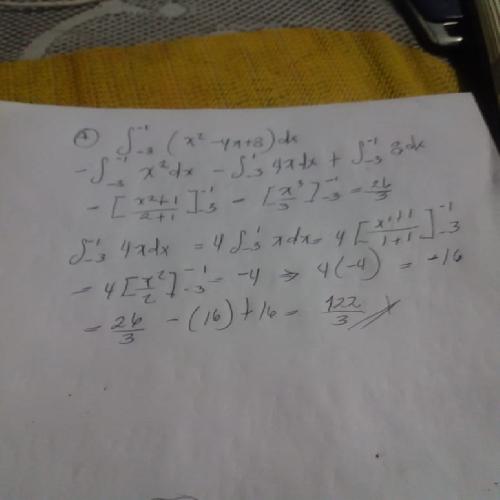 ④ ∫₋₃⁻¹ (x² - 4x + 8) dx
- ∫₋₃⁻¹ x² dx - ∫₋₃⁻¹ 4x dx + ∫₋₃⁻¹ 8 dx
- [x²⁺¹/2+1]₋₃⁻¹ - [x³/3]₋₃⁻¹ = 26/3
∫₋₃⁻¹ 4x dx = 4 ∫₋₃⁻¹ x dx = 4 [x¹⁺¹/1+1]₋₃⁻¹
= 4 [x²/2]₋₃⁻¹ = -4 ⇒ 4(-4) = -16
= 26/3 - (16) + 16 = 122/3